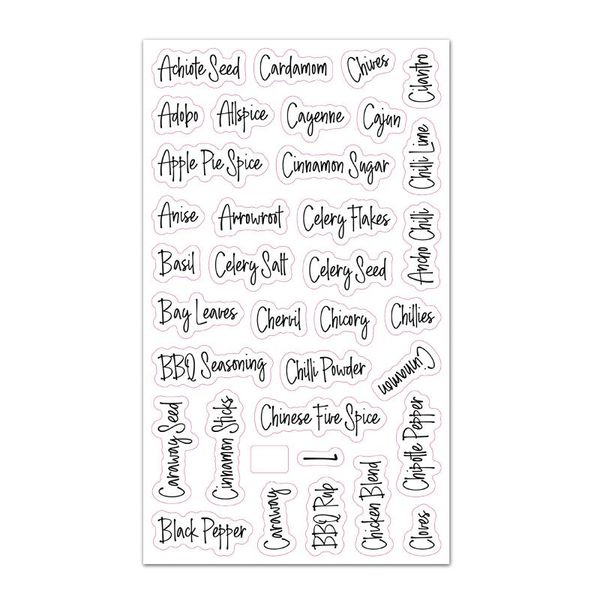 Achiote Seed
Cardamom
Chives
Cilantro
Adobo
Allspice
Cayenne
Cajun
Chilli Lime
Apple Pie Spice
Cinnamon Sugar
Anise
Arrowroot
Celery Flakes
Ancho Chilli
Basil
Celery Salt
Celery Seed
Bay Leaves
Chervil
Chicory
Chillies
BBQ Seasoning
Chilli Powder
Cinnamon
Chinese Five Spice
Caraway Seed
Cinnamon Sticks
Chipotle Pepper
L
Caraway
BBQ Rub
Chicken Blend
Cloves
Black Pepper